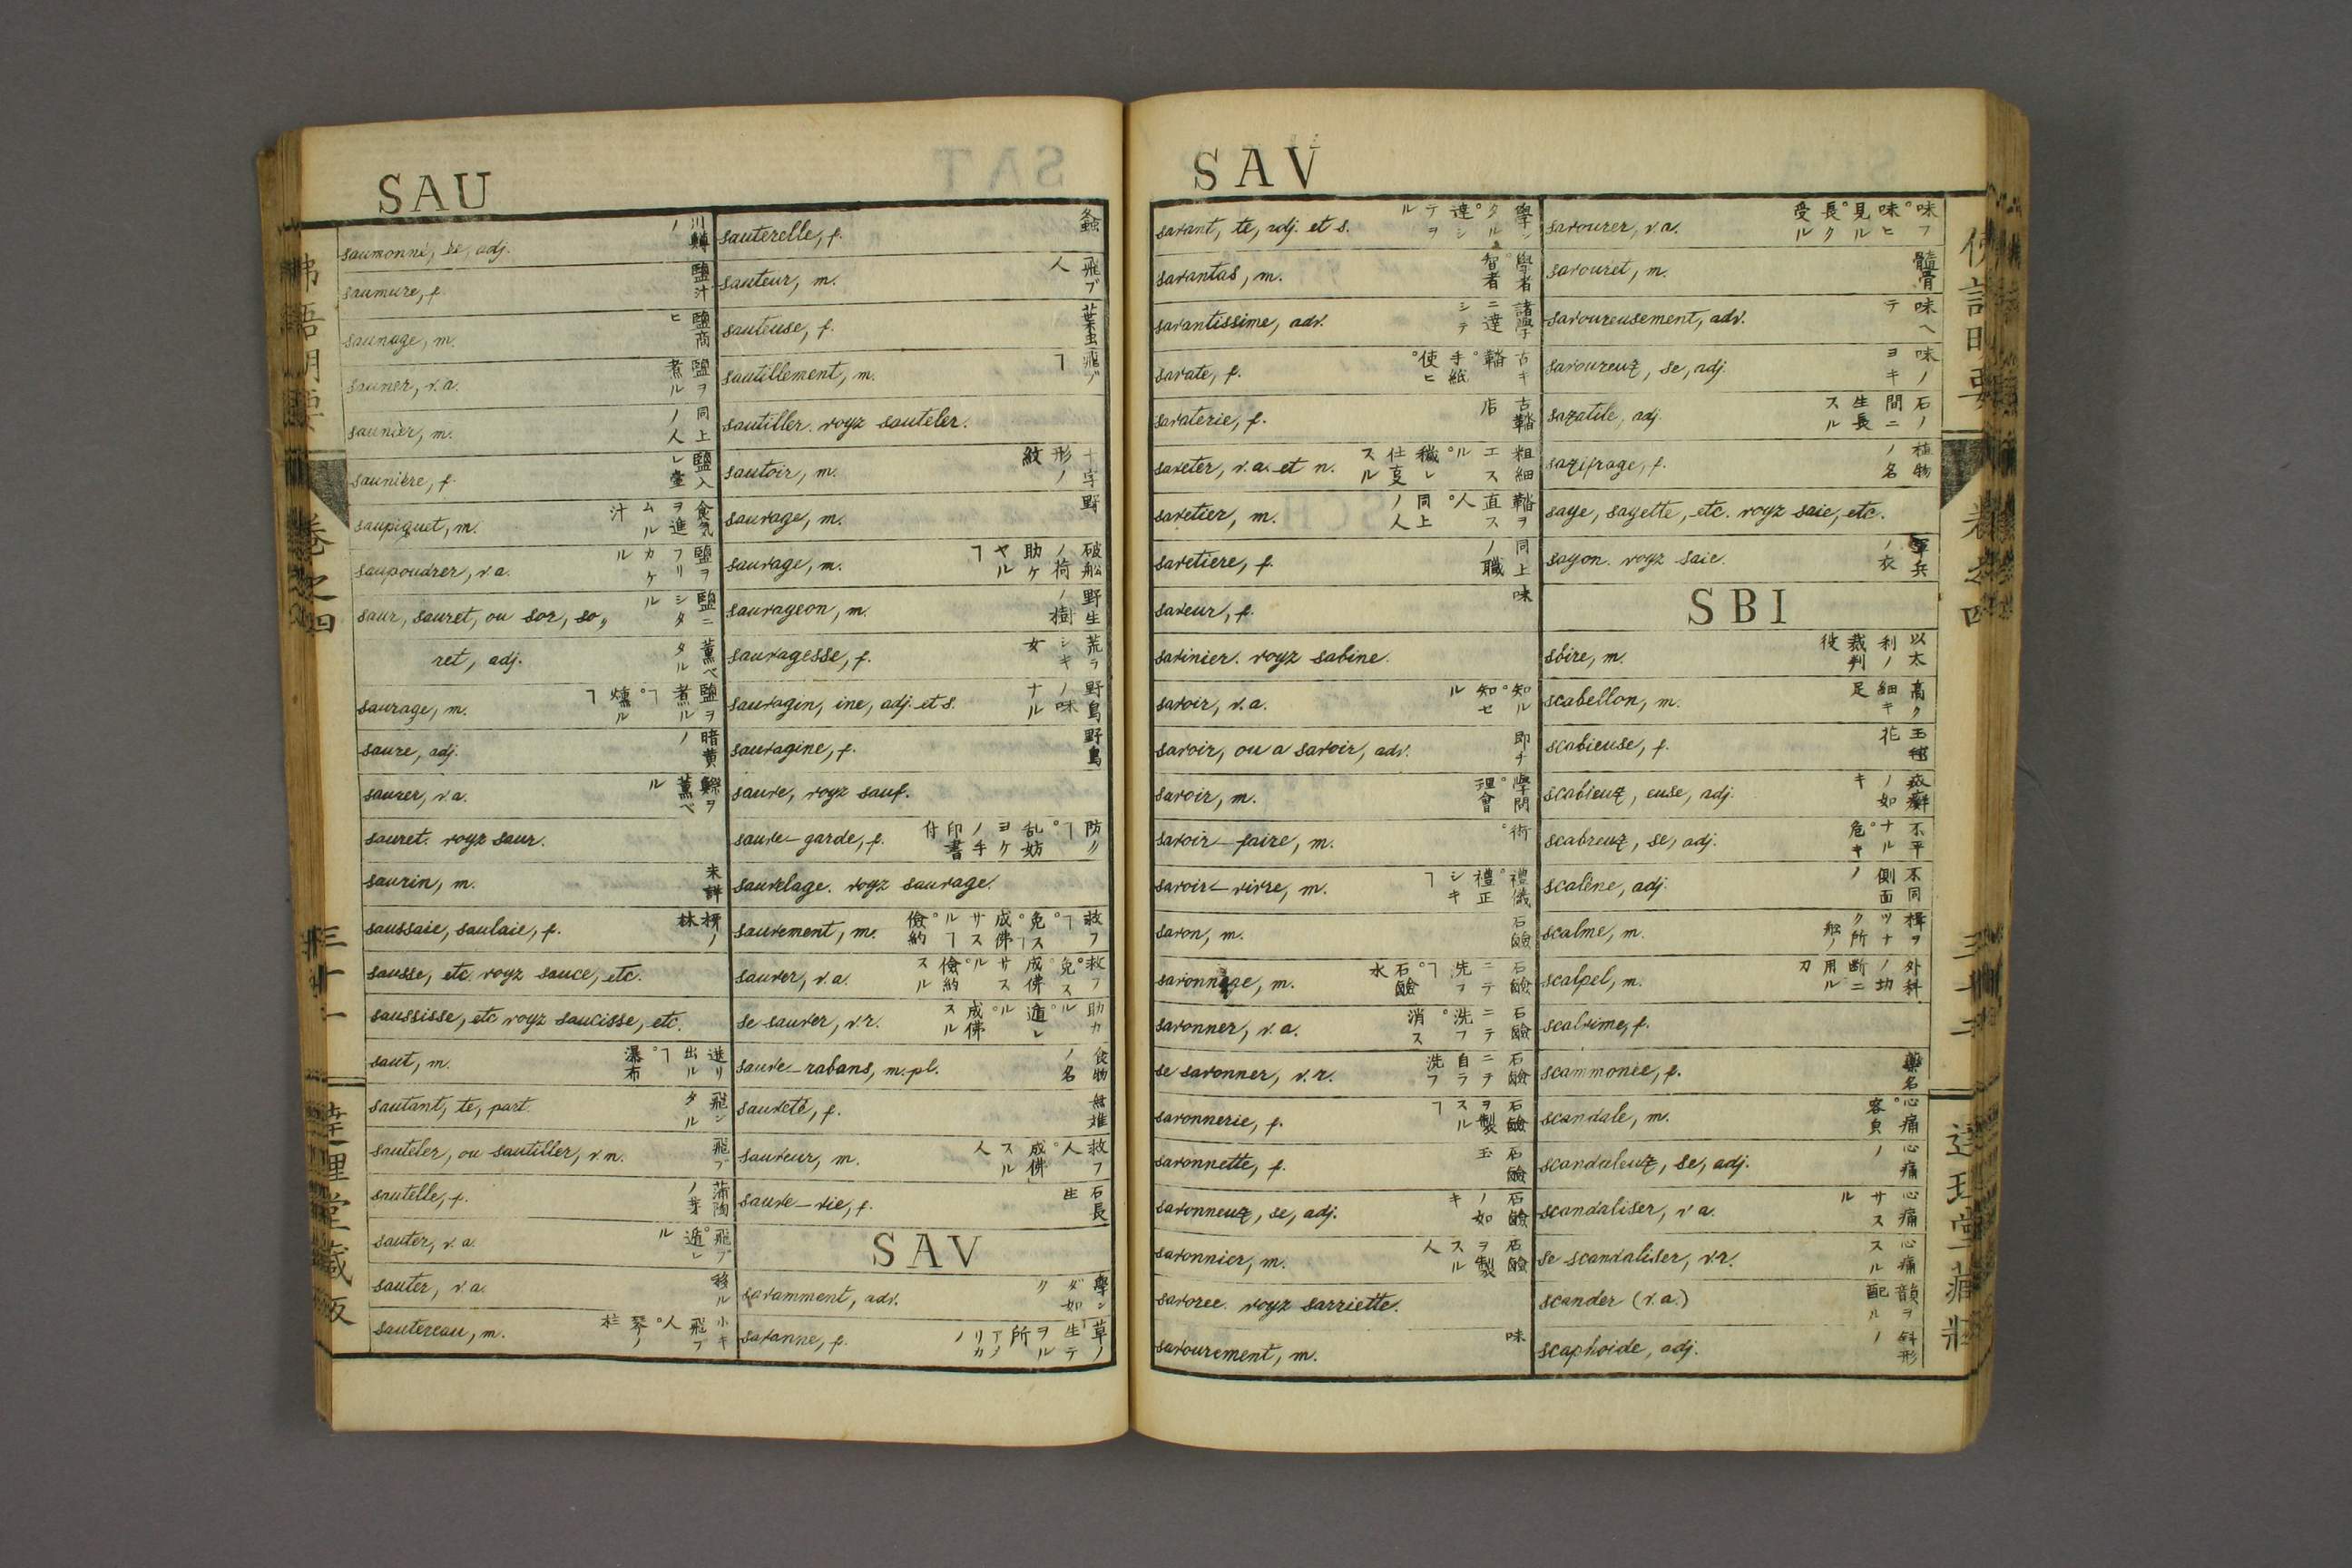 SAU
saumonné, ée, adj. 川鱒ノ
saumure, f. 鹽汁
saunage, m. 鹽商ヒ
sauner, v.a. 鹽ヲ煮ル
saunier, m. 同上ノ人
saunière, f. 鹽入レ壹
saupiquet, m. 食気ヲ進ムル汁
saupoudrer, v.a. 鹽ヲフリカケル
saur, sauret, ou sor, so„ 鹽ニシタル
ret, adj. 薫ベタル
saurage, m. 鹽ヲ煮ルヿ。燻ルヿ
saure, adj. 暗黄ノ
saurer, v.a. 鯡ヲ薫ベル
sauret. voyz saur.
saurin, m. 未詳
saussaie, saulaie, f. 林
sausse, etc. voyz sauce, etc.
saussisse, etc voyz saucisse, etc.
saut, m. 迸リ出ルヿ。瀑布
sautant, te, part. 飛ンタル
sauteler, ou sautiller, v.n. 飛ブ
sautelle, f. 蒲陶ノ芽
sauter, v.a. 飛ブ。遁レル
sauter, v.a. 移ル
sautereau, m. 小キ飛ブ人。琴ノ柱
sauterelle, f. 螽
sauteur, m. 飛ブ人
sauteuse, f. 葉虫
sautillement, m. 飛ブヿ
sautiller. voyz sauteler.
sautoir, m. 十字形ノ紋
sauvage, m. 野
sauvage, m. 破舩ノ荷助ケヤルヿ
sauvageon, m. 野生ノ樹
sauvagesse, f. 荒ラシキ女
sauvagin, ine, adj. et s. 野鳥ノ味ナル
sauvagine, f. 野鳥
sauve, voyz sauf.
sauve-garde, f. 防クヿ。乱妨ヨケノ手印書付
sauvelage. voyz sauvage.
sauvement, m. 救フヿ。免スヿ。成佛サスルヿ。儉約
sauver, v.a. 救フ。免ス。成佛サスル。儉約スル
se sauver, v.r. 助カル。遁レル。成佛スル
sauve-rabans, m. pl. 食物ノ名
sauveté, f. 無難
sauveur, m. 救フ人。成佛スル人
sauve-vie, f. 石長生
SAV
savamment, adv. 學ンダ如ク
savanne, f. 草ノ生テヲル所
SAV
savant, te, adj. et s. 學ンタル。達シテヲル
savantas, m. 學者。智者
savantissime, adv. 諸學ニ達シテ
savate, f. 古キ鞜。手紙使ヒ。
savaterie, f. 古鞜店
saveter, v.a. et n. 粗細エスル。穢レ仕叓スル
savetier, m. 鞜ヲ直ス人。同上ノ人
savetiere, f. 同上ノ職
saveur, f. 味
savinier. voyz sabine.
savoir, v.a. 知ル。知セル
savoir, ou a savoir, adv. 即チ
savoir, m. 學問。理會
savoir-faire, m. 術。
savoir-vivre, m. 禮儀。禮正シキヿ
savon, m. 石鹼
savonnage, m. 石鹼ニテ洗フヿ。石鹼水
savonner, v.a. 石鹼ニテ洗フ。消ス
se savonner, v.r. 石鹼ニテ自ラ洗フ
savonnerie, f. 石鹼ヲ製スルヿ
savonnette, f. 石鹼玉
savonneux, se, adj. 石鹼ノ如キ
savonnier, m. 石鹼ヲ製スル人
savoree. voyz sarriette.
savourement, m. 味
savourer, v.a. 味フ。味ヒ見ル。長ク受ル
savouret, m. 髓骨
savoureusement, adv. 味ヘテ
savoureux, se, adj. 味ノヨキ
saxatile, adj. 石ノ間ニ生長スル
saxifrage, f. 植物ノ名
saye, sayette, etc. voyz saie, etc.
sayon. voyz saie. 軍兵ノ衣
SBI
sbire, m. 以太利ノ裁判役
scabellon, m. 高ク細キ足
scabieuse, f. 玉毬花
scabieux, euse, adj. 疥癬ノ如キ
scabreux, se, adj. 不平ナル。危キ
scalène, adj. 不同側面ノ
scalme, m. 楫ヲツナク所
scalpel, m. 外科ノ切断ニ用ル刀
scalvime, f.
scammonée, f. 藥名
scandale, m. 心痛。容貟
scandaleux, se, adj. 心痛ノ
scandaliser, v.a. 心痛サスル
se scandaliser, v.r. 心痛スル
scander (v.a.) 韻ヲ配ル
scaphoïde, adj. 舟形ノ
卷之四
三十一
達理堂藏版
卷之四
三十二
達理堂藏